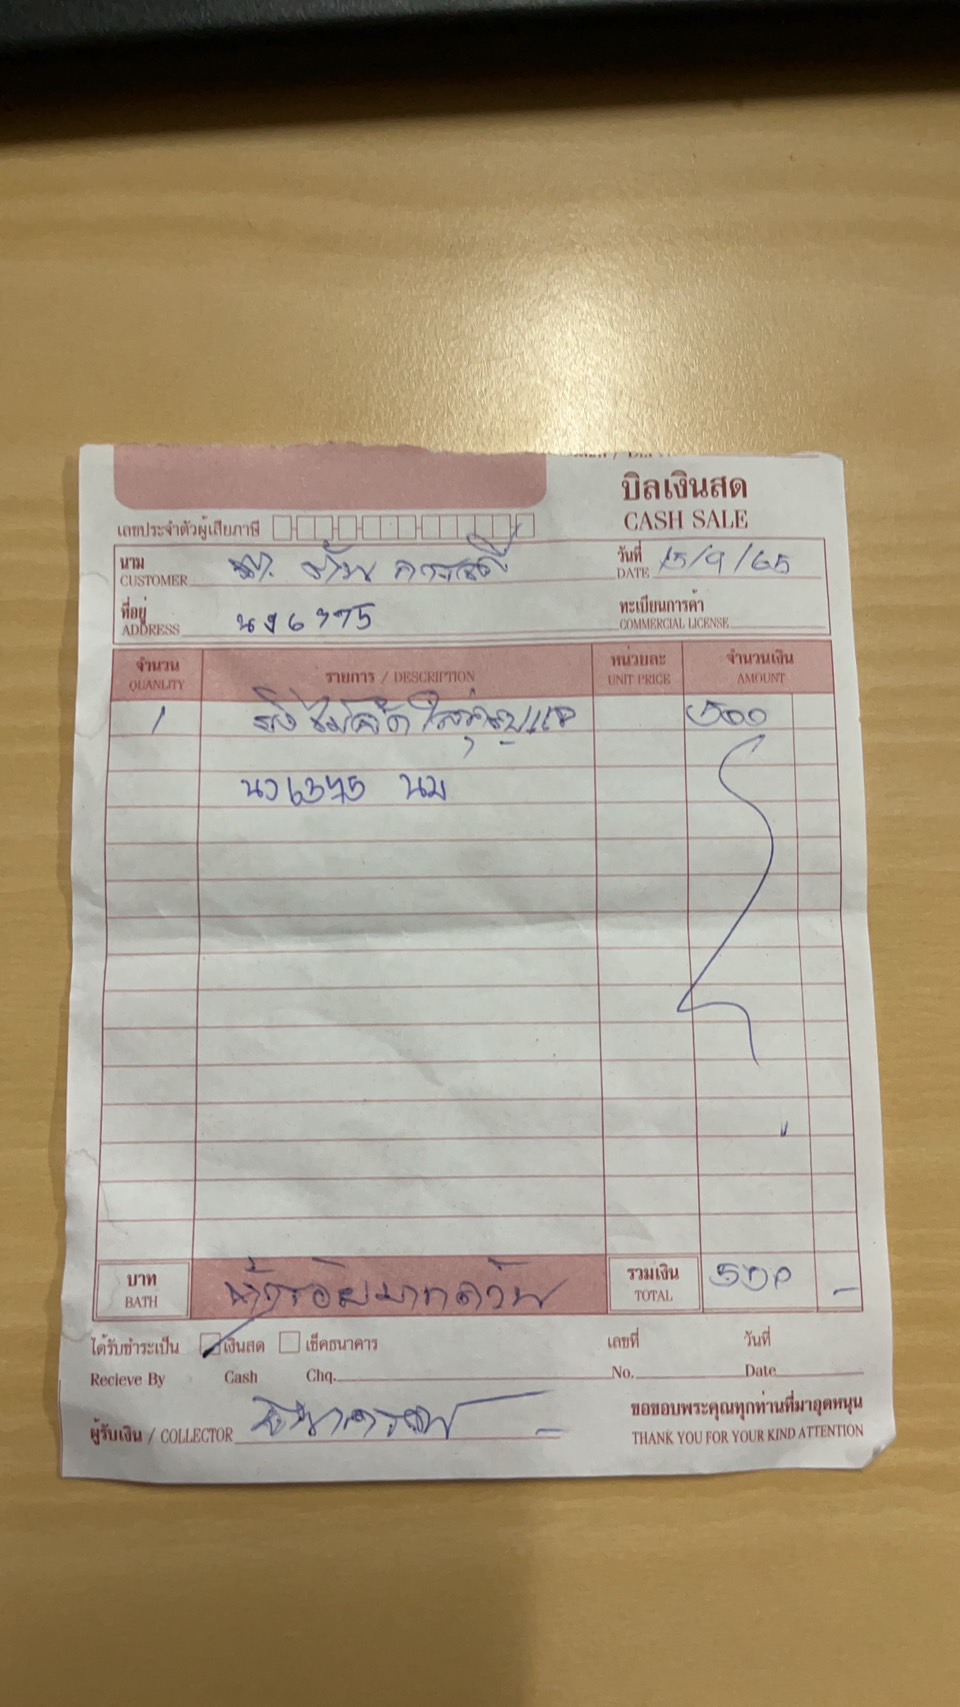 บิลเงินสด
CASH SALE
เลขประจำตัวผู้เสียภาษี
นาม
CUSTOMER
วันที่
DATE 15/9/65
ที่อยู่
ADDRESS นง 6375
ทะเบียนการค้า
COMMERCIAL LICENSE
จำนวน รายการ / DESCRIPTION หน่วยละ จำนวนเงิน
QUANLITY UNIT PRICE AMOUNT
1 500
6375 นม
บาท ห้าร้อยบาทถ้วน รวมเงิน 500 –
BATH TOTAL
ได้รับชำระเป็น เงินสด เช็คธนาคาร เลขที่ วันที่
Recieve By Cash Chq. No. Date
ขอขอบพระคุณทุกท่านที่มาอุดหนุน
ผู้รับเงิน / COLLECTOR THANK YOU FOR YOUR KIND ATTENTION